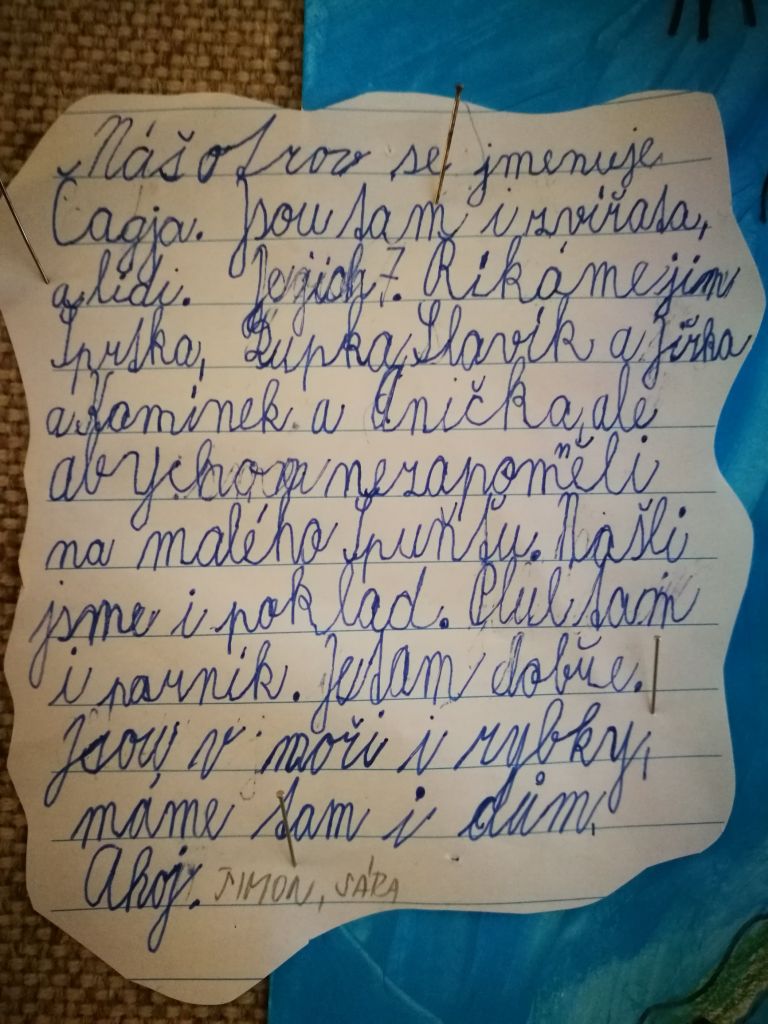 Náš ostrov se jmenuje
Čagja. Jsou tam i zvířata,
a lidi. Je jich 7. Říkáme jim
Šprtka, Župka, Slavík a Jiřka
a Kamínek a Anička, ale
abychom nezapomněli
na malého Špuntu. Našli
jsme i poklad. Plul tam
i parník. Je tam dobře.
Jsou v moři i rybky,
máme tam i dům.
Ahoj. ŠIMON, SÁRA